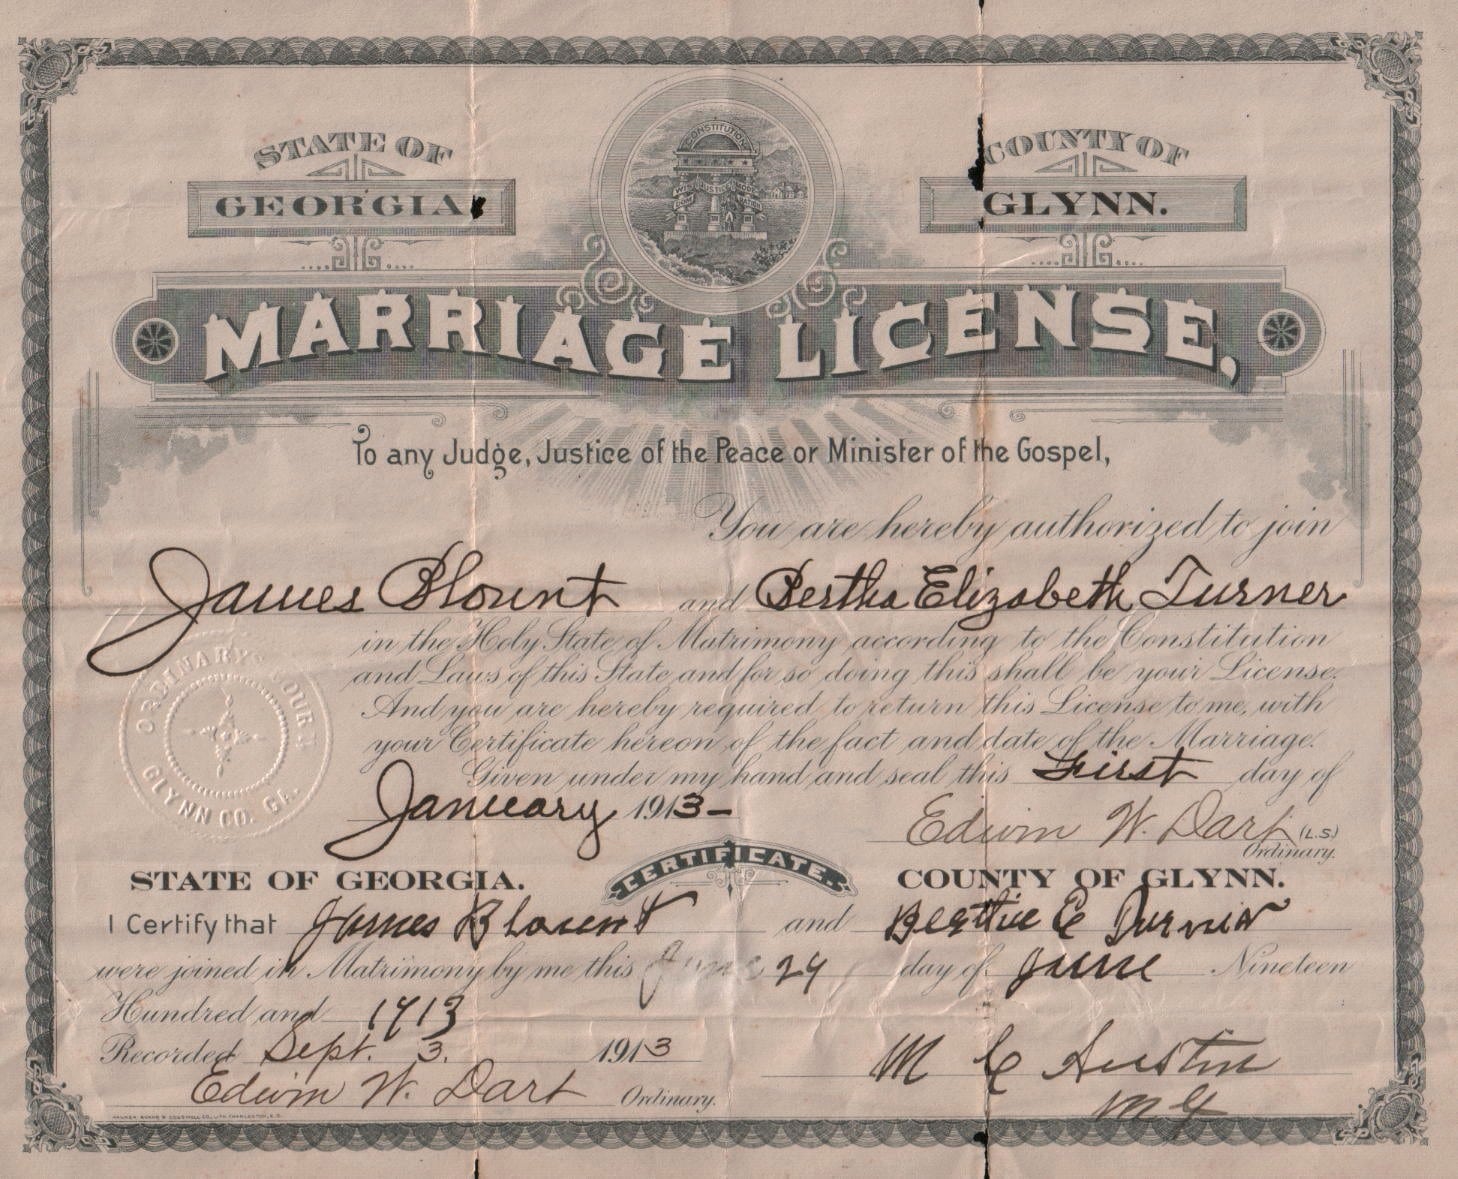 STATE OF
GEORGIA.
CONSTITUTION
WISDOM JUSTICE MODERATION
COUNTY OF
GLYNN.
MARRIAGE LICENSE,
To any Judge, Justice of the Peace or Minister of the Gospel,
You are hereby authorized to join
James Blount and Bertha Elizabeth Turner
in the Holy State of Matrimony according to the Constitution
and Laws of this State and for so doing this shall be your License.
And you are hereby required to return this License to me, with
your Certificate hereon of the fact and date of the Marriage.
Given under my hand and seal this First day of
January 1913-
Edwin W. Dart (L.S.)
Ordinary.
ORDINARY COURT
GLYNN CO. GA.
CERTIFICATE.
STATE OF GEORGIA. COUNTY OF GLYNN.
I Certify that James Blount and Berthie E Turner
were joined in Matrimony by me this June 24 day of June Nineteen
Hundred and 1913
Recorded Sept. 3. 1913
M C Austin
M G
Edwin W. Dart Ordinary.
WALKER, EVANS & COGSWELL CO., LITH. CHARLESTON, S.C.